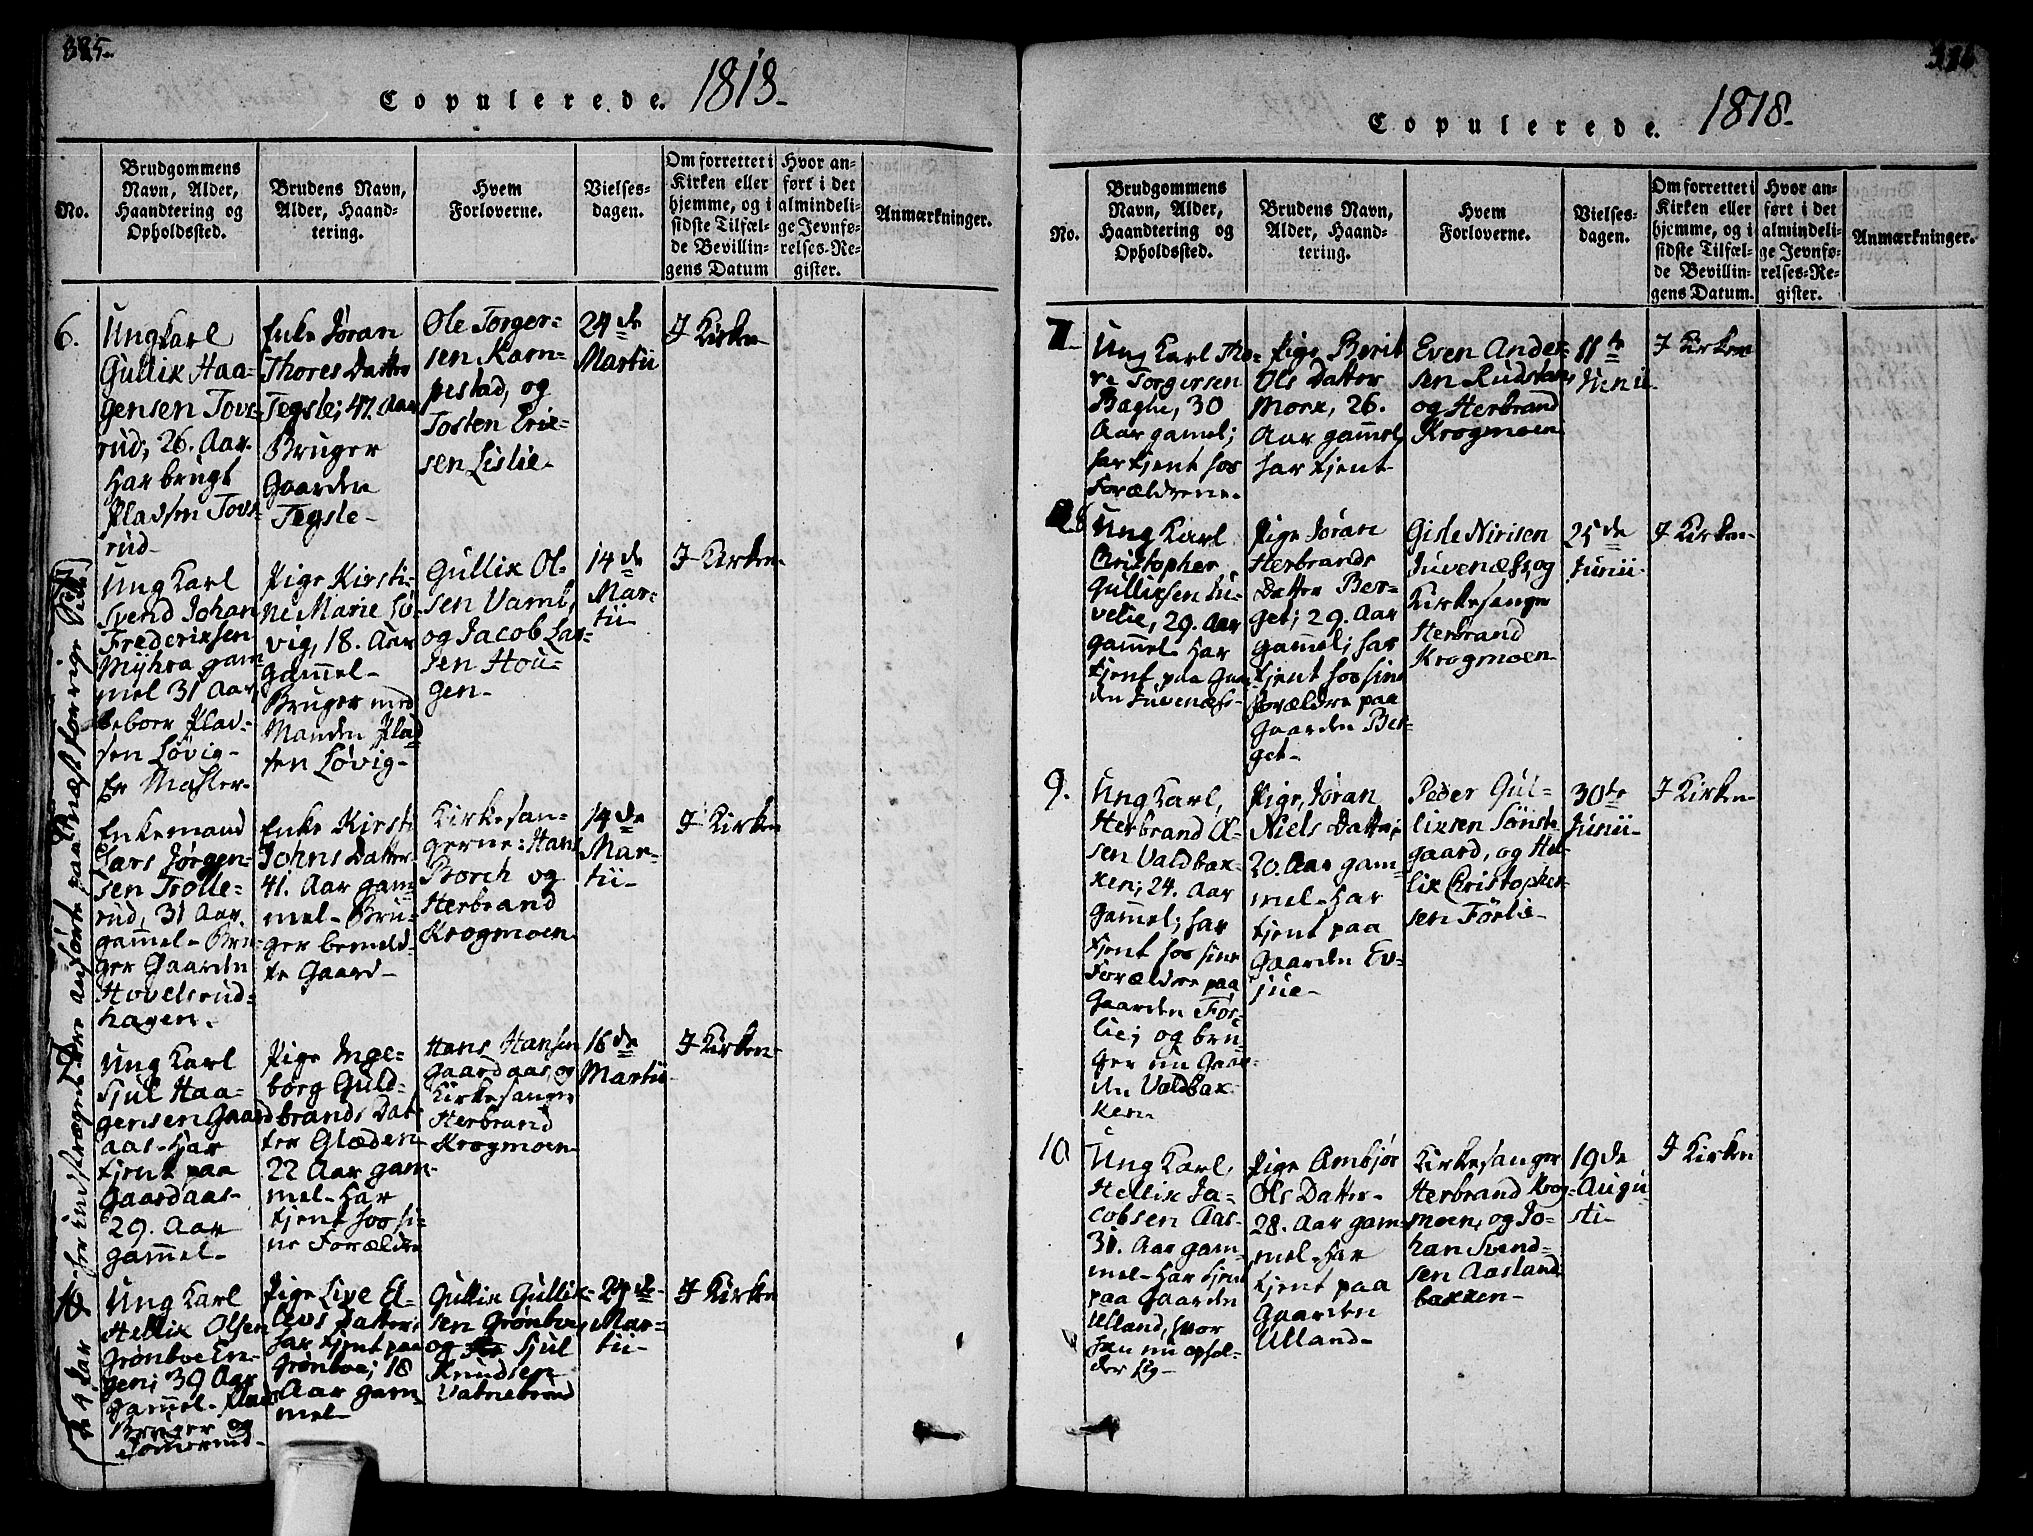 385.
Copulerede. 1818.
No.
Brudgommens
Navn, Alder,
Haandtering og
Opholdssted.
Brudens Navn,
Alder, Haand-
tering.
Hvem
Forloverne.
Vielses-
dagen.
Om forrettet i
Kirken eller
hjemme, og i
sidste Tilfæl-
de Bevillin-
gens Datum
Hvor an-
ført i det
almindeli-
ge Jevnfø-
relses-Re-
gister.
Anmærkninger.
6.
Ungkarl
Gullik Haa-
gensen Tovs-
rud, 26. Aar.
Har brugt
Pladsen Tovs-
rud-
Enke Jøran
Thores Datter
Tegsle; 47. Aar
Bruger
Gaarden
Tegsle-
Ole Torger-
sen Kam-
pestad, og
Tosten Erik-
sen Lislie-
24de
Martii
I Kirken-
Ung Karl
Svend Johan
Frederiksen
Mijhra gam-
mel 31 Aar
beboer Plad-
sen Løvig-
Er Mahler-
Pige Kirsti-
ne Marie Lø-
vig, 18. Aar
gammel-
Bruger med
Manden Plad
sen Løvig-
Gullik Ol-
sen Vami,
og Jacob Lar-
sen Hou-
gen-
14de
Mar-
tii-
I Kirken-
Enkemand
Lars Jørgen-
sen Trolle-
rud, 31 Aar
gammel- Bru-
ger Gaarden
Hovelsrud-
hagen.
Enke Kirsti
Johns Datter
41. Aar gam
mel- Bru-
ger bemeld-
te Gaard-
Kirkesan-
gerne: Hans
Borch og
Herbrand
Krogmoen
14de
Mar-
tii-
I Kirken
Ung Karl
Sjul Haa-
gensen Gaard
aas- Har
tjent paa
Gaardaas-
29. Aar
gammel-
Pige Inge-
borg Guld-
brands Dat-
ter Glæden
22 Aar gam-
mel- Har
tjent hos si-
ne Forældre
Hans Hansen
Gaardaas, og
Kirkesanger
Herbrand
Krogmoen-
16de
Martii
I Kirken-
Ung Karl
Hellik Olsen
Grøntvei En-
gen; 39 Aar
gammel- Plads
Bruger og
Tømermd-
Pige Live El-
levs Datter;
har tjent paa
Grøntvei; 18
Aar gam
mel-
Gullik Gullik-
sen Grøntvei,
og Sjul
Knudsen
Vatnebrønd
24de
Mar-
tii-
I Kirken
De 4 Par her indskrægne ere anførte paa næst forrige Side
Copulerede. 1818.
No.
Brudgommens
Navn, Alder,
Haandtering og
Opholdssted.
Brudens Navn,
Alder, Haand-
tering.
Hvem
Forloverne.
Vielses-
dagen.
Om forrettet i
Kirken eller
hjemme, og i
sidste Tilfæl-
de Bevillin-
gens Datum.
Hvor an-
ført i det
almindeli-
ge Jevnfø-
relses-Re-
gister.
Anmærkninger.
7
Ung Karl Tho-
re Torgersen
Baghe, 30
Aar gamel;
har tjent hos
Forældrene.
Pige Berit
Ols Datter
Mork, 26.
Aar gammel,
har tjent
Even Ander-
sen Rudstan,
og Herbrand
Krogmoen
11te
Junii
I Kirken
8
Ung Karl
Christopher
Gulliksen Ju-
velie, 29. Aar
gammel- Har
tjent paa Gaar
den Juvenæs-
Pige Jøran
Herbrands
Datter Ber-
get; 29. Aar
gammel; har
tjent hos sine
Forældre paa
Gaarden Ber-
get-
Gisle Nirisen
Juvenæs, og
Kirkesanger
Herbrand
Krogmoen-
25de
Junii-
I Kirken-
9.
Ung Karl,
Herbrand Ol-
sen Valdbak-
ken; 24. Aar
gammel; har
tjent hos sine
Forældre paa
Gaarden Før-
lie; og bru-
ger nu Gaar-
den Valdbak-
ken-
Pige, Jøran
Niels Datter
20. Aar gam
mel- Har
tjent paa
Gaarden Ev-
jue-
Peder Gul-
liksen Sønste
gaard, og Hel-
lik Christopher-
sen Førlie-
30te
Junii-
I Kirken-
10
Ung Karl,
Hellik Ja-
cobsen Aas-
31. Aar gam-
mel- Har tjent
paa Gaarden
Ulland, hvor
han nu ophol-
der sig-
Pige Ambjør
Ols Datter-
28. Aar gam-
mel- Har
tjent paa
Gaarden
Ulland-
Kirkesanger
Herbrand Krog-
moen, og Jo-
han Svend-
sen Aasland-
bakken-
19de
Augu
sti-
I Kirken